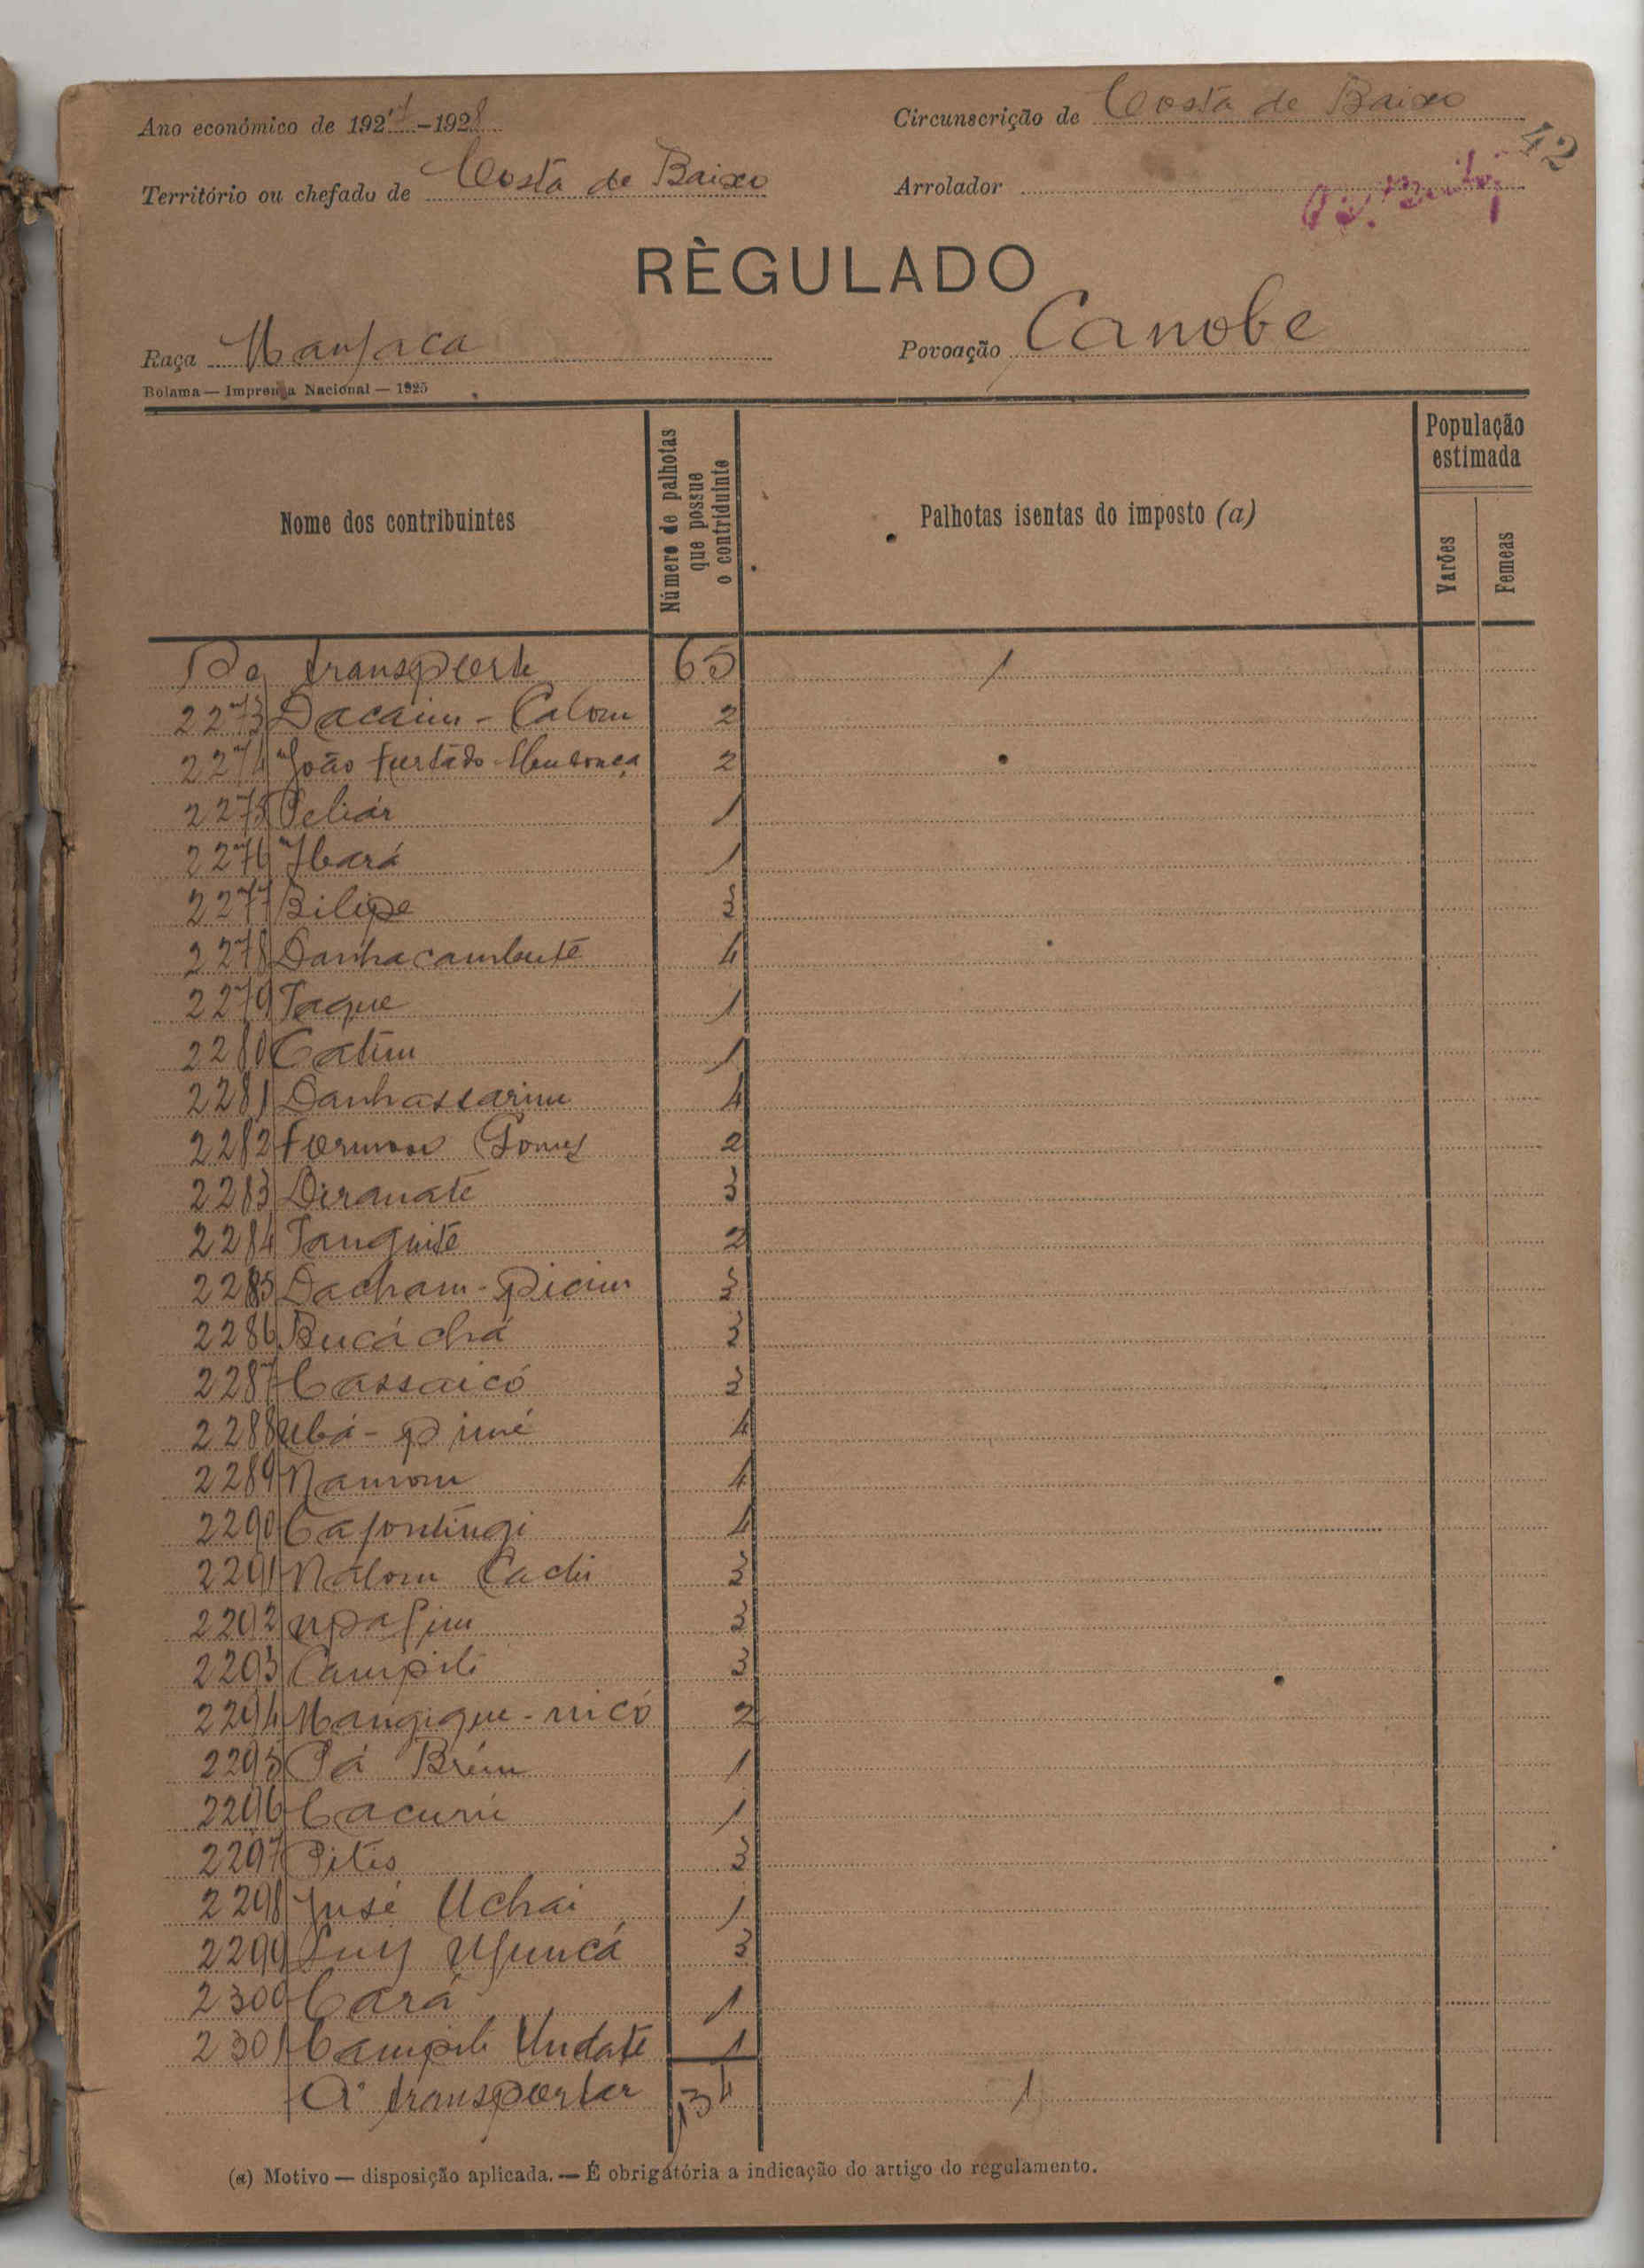 Ano económico de 1927-1928
Circunscrição de Costa de Baixo
42
Território ou chefado de Costa de Baixo
Arrolador
RÈGULADO
Raça Manjaca
Povoação Canobe
Bolama — Imprensa Nacional — 1925
Nome dos contribuintes
Número de palhotas que possue o contriduinte
Palhotas isentas do imposto (a)
População estimada
Varões
Femeas
De transporte 65 1
2273 Dacaim - Calom 2
2274 João Furtado Mendonça 2
2275 Peliár 1
2276 Ibará 1
2277 Bilipe 3
2278 Danhacambuté 4
2279 Taque 1
2280 Catim 1
2281 Danhassarim 4
2282 Gomes 2
2283 Diranate 3
2284 Tanguité 2
2285 Dacham - Picim 3
2286 Bucáchá 3
2287 Cassaicó 3
2288 Ubá - Pimé 4
2289 Namom 4
2290 Cafontingi 4
2291 Nalom Cachi 3
2292 3
2293 Campili 3
2294 Mangique - nicó 2
2295 Pá Brém 1
2296 Cacuni 1
2297 Pités 3
2298 José Uchai 1
2299 Luiz 3
2300 Cará 1
2301 Campili Undate 1
A transportar 134 1
(a) Motivo — disposição aplicada. — É obrigatória a indicação do artigo do regulamento.